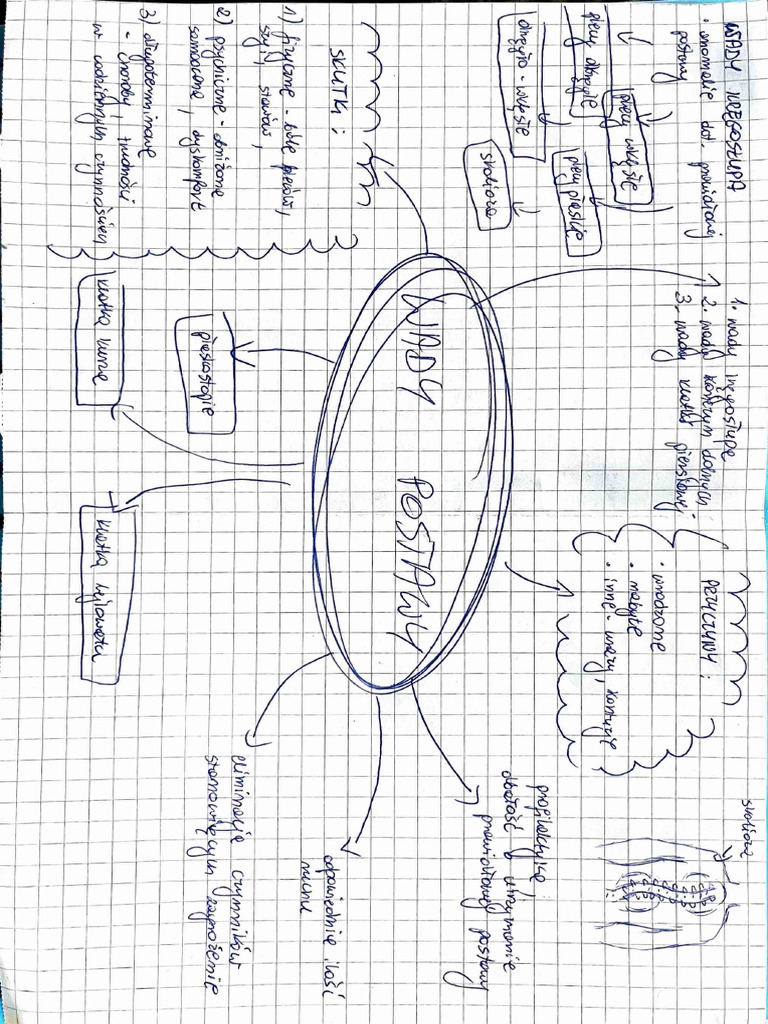 WADY KRĘGOSŁUPA
• anomalie dot. prawidłowej
postawy
plecy wklęsłe
plecy okrągłe
plecy płaskie
okrągło-wklęsłe
skolioza
1. wady kręgosłupa
2. wady kończyn dolnych
3. wady klatki piersiowej
PRZYCZYNY:
• wrodzone
• nabyte
• inne - urazy, kontuzje
skolioza
WADY POSTAWY
SKUTKI:
1) fizyczne - bóle pleców,
szyi, stawów,
2) psychiczne - obniżone
samoocena, dyskomfort
3) długoterminowe
- choroby, trudności
w codziennych czynnościach
płaskostopie
klatka kurza
klatka lejkowata
profilaktyka:
dbałość o utrzymanie
prawidłowej postawy
odpowiednia ilość
ruchu
eliminacja czynników
stanowiących zagrożenie